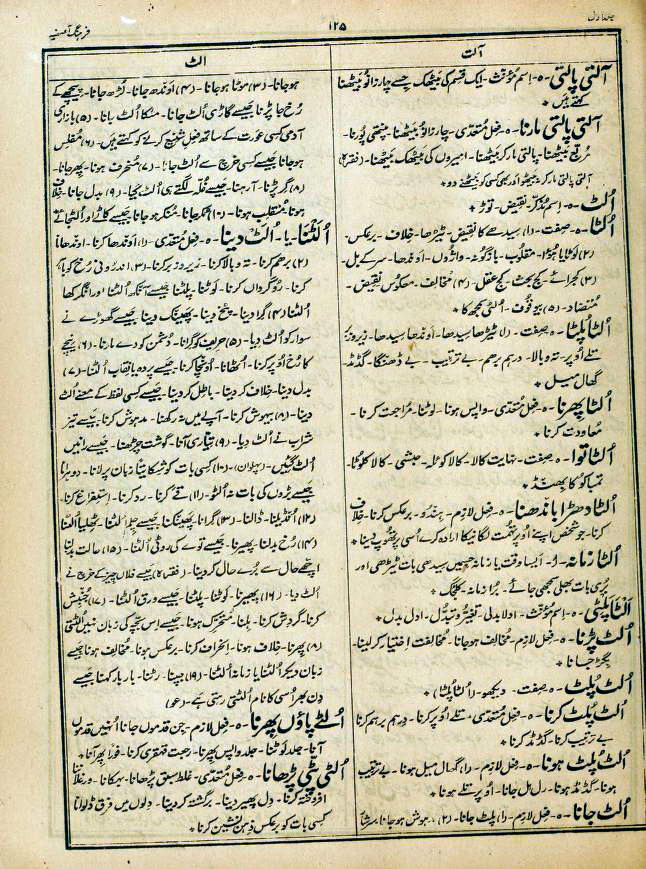 جلد اول
۱۲۵
فرہنگ آصفیہ
الٹ
آلتی پالتی - ہ - اسم مؤنث - ایک قسم کی بیٹھک جسے چارزانو بیٹھنا
کہتے ہیں *
آلتی پالتی مارنا - ہ - فعل متعدی - چارزانو بیٹھنا - پتھی پُورنا -
مربع بیٹھنا - پالتی مار کر بیٹھنا - امیروں کی بیٹھک بیٹھنا - (فقرہ)
آلتی پالتی مار کر بیٹھو اور بھی کسی کو بیٹھنے دو *
اُلٹ - ہ - اسم مذکر - نقیض - توڑ *
اُلٹا - ہ - صفت - (۱) سیدھے کا نقیض - ٹیڑھا - خلاف - برعکس -
(۲) لوٹا یا ہوا - مقلوب - بازگونہ - واژوں - اوندھا - سر کے بل -
(۳) کجرائے - کج بحث - کج عقل - (۴) مخالف - معکوس نقیض -
متضاد - (۵) بیوقوف - اُلٹی سمجھ کا *
اُلٹا پلٹا - ہ - صفت - (۱) ٹیڑھا سیدھا - اوندھا سیدھا - زیر و زبر
تلے اوپر - تہ و بالا - درہم برہم - بے ترتیب - بے ڈھنگا - گڈمڈ
گھال میل *
اُلٹا پھرنا - ہ - فعل متعدی - واپس ہونا - لوٹنا - مراجعت کرنا -
معاودت کرنا *
اُلٹا توا - ہ - صفت - نہایت کالا - کالا کوئلہ - حبشی - کالا کلوٹا -
تمباکو کا پھنڈ *
اُلٹا دھڑا باندھنا - ہ - فعل لازم - ہندو - برعکس کرنا - خلاف
کرنا - جو شخص اپنے اوپر تہمت لگانیکا ارادہ کرے اُسی پر تھوپ دینا *
اُلٹا زمانہ - ا - ایسا وقت یا زمانہ جسمیں سیدھی بات ٹیڑھی اور
بری بات بھلی سمجھی جائے - بُرا زمانہ - کلجگ *
اَلٹا پلٹی - ہ - اسم مؤنث - ادلا بدلی - تغیر و تبدل - ادل بدل *
اُلٹ پڑنا - ہ - فعل لازم - مخالف ہو جانا - مخالفت اختیار کر لینا -
بگڑ جانا *
اُلٹ پلٹ - ہ - صفت - دیکھو - (اُلٹا پُلٹا) *
اُلٹ پلٹ کرنا - ہ - فعل متعدی - تلے اوپر کرنا - درہم برہم کرنا
بے ترتیب کرنا - گڈمڈ کرنا *
اُلٹ پلٹ ہونا - ہ - فعل لازم - (۱) گھال میل ہونا - بے ترتیب
ہونا - گڈمڈ ہونا - رل مل جانا - اوپر تلے ہونا *
اُلٹ جانا - ہ - فعل لازم - (۱) پلٹ جانا - (۲) مدہوش ہو جانا - سرشار
الٹ
ہو جانا - (۳) موٹا ہو جانا - (۴) اوندھ جانا - لڑھ جانا - پیچھے کے
رُخ جا پڑنا جیسے گاڑی اُلٹ جانا - مٹکا اُلٹ جانا - (۵) بازاری
آدمی کسی عورت کے ساتھ فعل شنیع کرنے کو کہتے ہیں - (۶) مفلس
ہو جانا جیسے کسی خرچ سے اُلٹ جانا - (۷) منحرف ہونا - پھر جانا -
(۸) گر پڑنا - آ رہنا - جیسے غلّہ لگتے ہی اُلٹ گیا - (۹) بدل جانا - خلاف
ہونا - منقلب ہونا - (۱۰) مکر جانا - منکر ہو جانا جیسے کاٹے اور اُلٹ جائے
اُلٹنا - یا - اُلٹ دینا - ہ - فعل متعدی - (۱) اوندھا کرنا - اوندھانا
(۲) برہم کرنا - تہ و بالا کرنا - زیر و زبر کرنا - (۳) اندرونی رُخ کو باہر
کرنا - روگرداں کرنا - لوٹنا - پلٹنا جیسے آنکھ اُلٹنا اور انگرکھا
اُلٹنا (۴) گرا دینا - پٹخ دینا - پھینک دینا جیسے گھوڑے نے
سوار کو اُلٹ دیا - (۵) حریف کو گرانا - دشمن کو دے مارنا - (۶) نیچے
کا رُخ اوپر کرنا - اُٹھانا - اونچا کرنا - جیسے پردہ یا نقاب اُلٹنا - (۷)
بدل دینا - خلاف کر دینا - باطل کر دینا - جیسے کسی لفظ کے معنے اُلٹ
دینا - (۸) بیہوش کرنا - آپے میں نہ رکھنا - مدہوش کرنا - جیسے تیز
شراب نے اُلٹ دیا - (۹) تیاری آنا - گوشت چڑھنا - جیسے رانیں
اُلٹ گئیں - (پہلوان) - (۱۰) کسی بات کو شکایتاً زبان پر لانا - دوہرانا
جیسے بڑوں کی بات نہ اُلٹو - (۱۱) قے کرنا - رد کرنا - استفراغ کرنا -
(۱۲) انڈیلنا - ڈالنا - (۱۳) گرانا - پھینکنا - جیسے چلم اُلٹنا - ٹھلیا اُلٹنا
(۱۴) رُخ بدلنا - پھیرنا - جیسے توے کی روٹی اُلٹنا - (۱۵) حالت بدلنا
اچھے حال سے بُرے حال کر دینا - (فقرہ) جیسے فلاں چیز کے خرچ نے
اُلٹ دیا - (۱۶) پھیرنا - لوٹنا - پلٹنا - جیسے ورق اُلٹنا - (۱۷) جنبش
کرنا - گردش کرنا - ہلنا - متحرک ہونا - جیسے اس بچہ کی زبان نہیں اُلٹتی
(۱۸) پھرنا - خلاف ہونا - انحراف کرنا - برعکس ہونا - مخالف ہونا جیسے
زبان دیکر اُلٹنا یا زمانہ اُلٹنا - (۱۹) جپنا - رٹنا - بار بار کہنا جیسے
دن بھر اُسی کا نام اُلٹتی رہتی ہے - (عو)
اُلٹے پاؤں پھرنا - ہ - فعل لازم - جن قدموں جانا اُنہیں قدموں
آنا - جلد لوٹنا - جلد واپس پھرنا - رجعت قہقری کرنا - فوراً پھر آنا *
اُلٹی پٹی پڑھانا - ہ - فعل متعدی - غلط سبق پڑھانا - بہکانا - ورغلاننا
افروختہ کرنا - دل پھیر دینا - برگشتہ کر دینا - دلوں میں فرق ڈلوانا
کسی بات کو برعکس ذہن نشین کرنا *